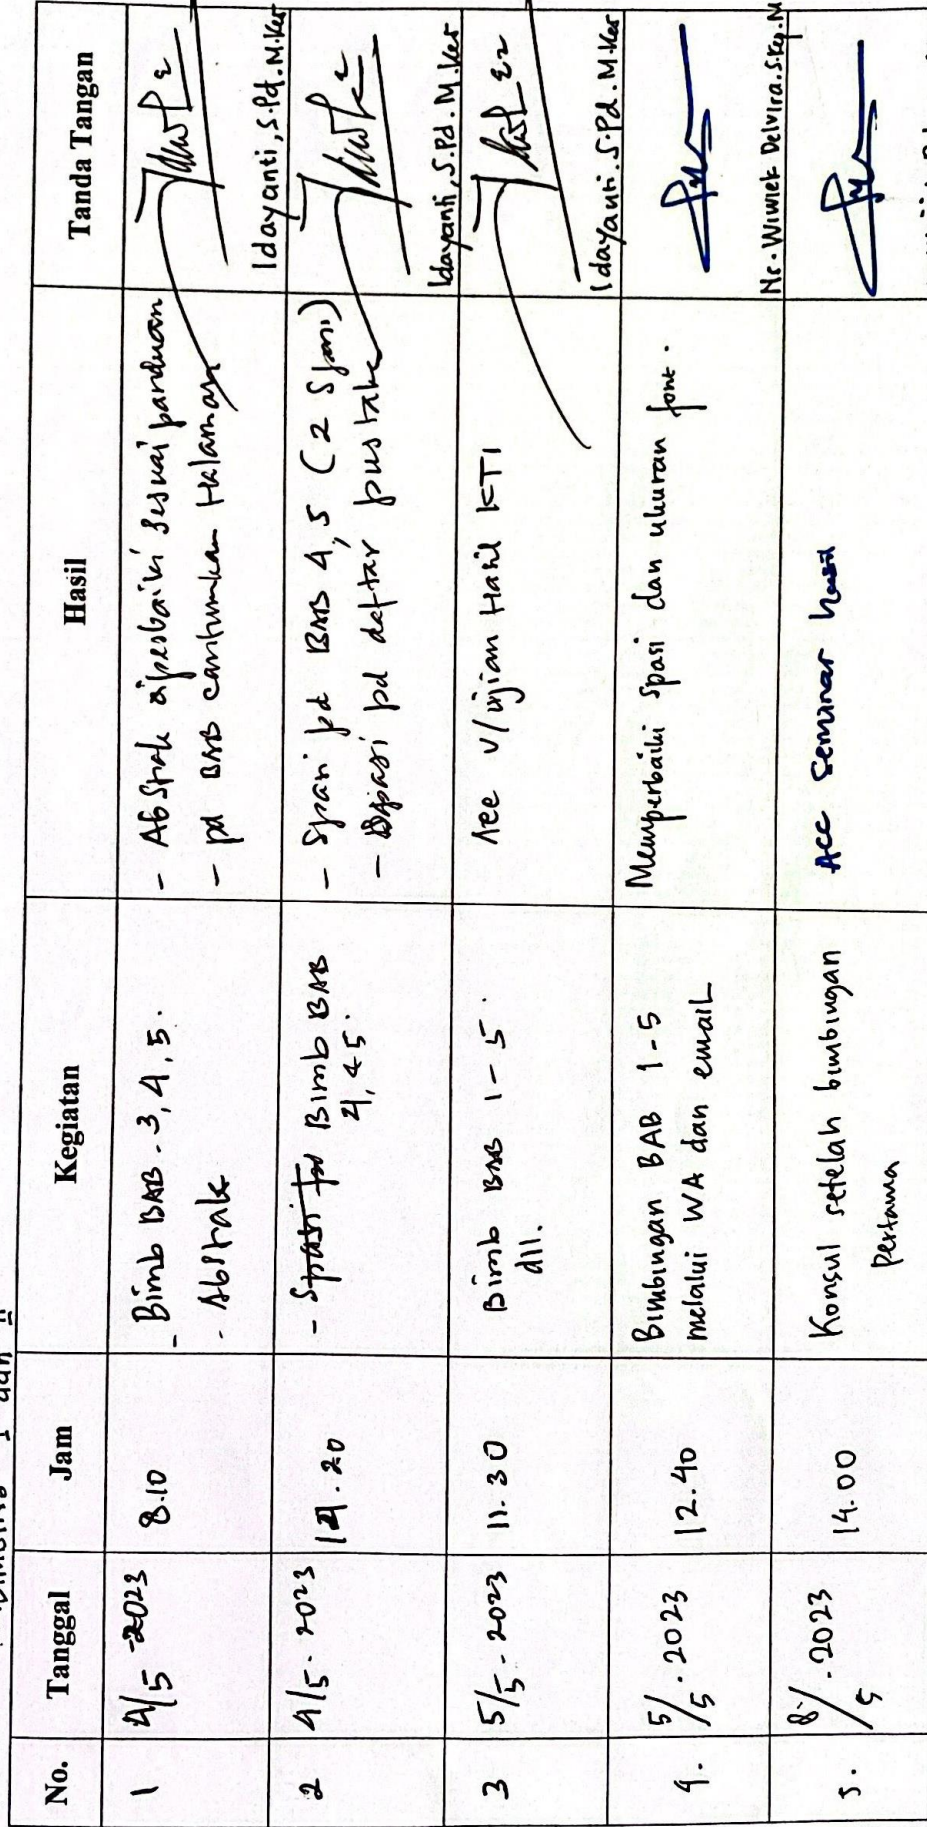 No. Tanggal Jam Kegiatan Hasil Tanda Tangan
1 4/5-2023 8.10 - Bimb BAB. 3, 4, 5. - Abstrak diperbaiki sesuai panduan
- Abstrak - pd BAB cantumkan Halaman
Idayanti, S.Pd. M.Kes
2 4/5-2023 14.20 - Spasi pd Bimb BAB - Spasi pd BAB 4, 5 (2 Spasi)
4, & 5. - Spasi pd daftar pustaka
Idayanti, S.Pd. M.Kes
3 5/5-2023 11.30 Bimb BAB 1-5. Acc u/ujian Hasil KTI
dll.
Idayanti. S.Pd. M.Kes
4. 5/5.2023 12.40 Bimbingan BAB 1-5 Memperbaiki spasi dan ukuran font.
melalui WA dan email
Ns. Wiwiek Delvira. S.Kep. M
5. 8/5.2023 14.00 Konsul setelah bimbingan ACC Seminar hasil
Pertama